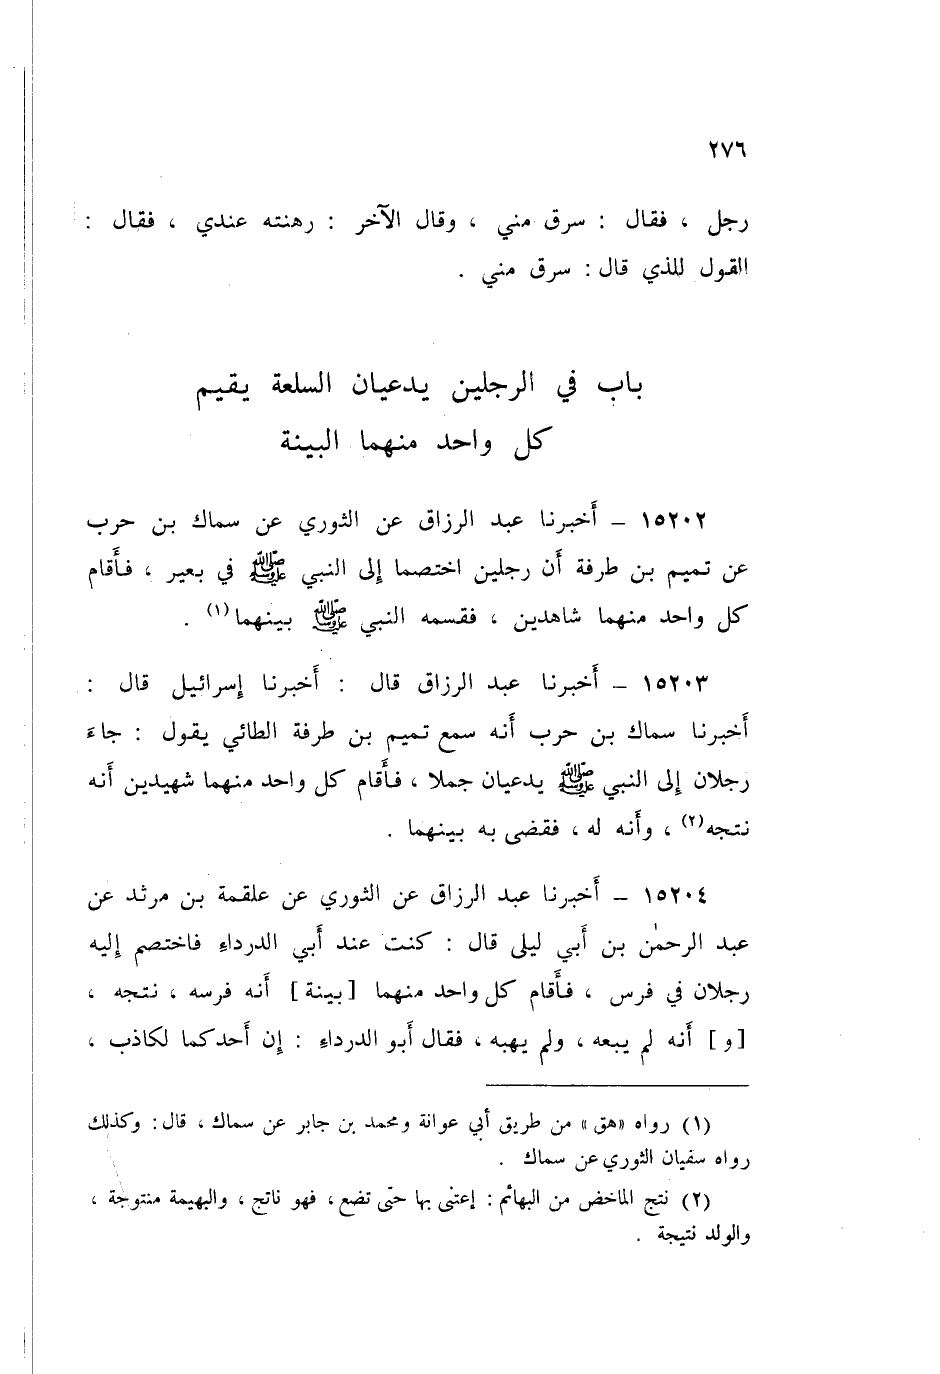 ٢٧٦
رجل ، فقال : سرق مني ، وقال الآخر : رهنته عندي ، فقال :
القول للذي قال : سرق مني .
باب في الرجلين يدعيان السلعة يقيم
كل واحد منهما البينة
١٥٢٠٢ – أَخبرنا عبد الرزاق عن الثوري عن سماك بن حرب
عن تميم بن طرفة أَن رجلين اختصما إلى النبي ﷺ في بعير ، فأَقام
كل واحد منهما شاهدين ، فقسمه النبي ﷺ بينهما(١) .
١٥٢٠٣ – أَخبرنا عبد الرزاق قال : أَخبرنا إسرائيل قال :
أَخبرنا سماك بن حرب أَنه سمع تميم بن طرفة الطائي يقول : جاءَ
رجلان إلى النبي ﷺ يدعيان جملا ، فأَقام كل واحد منهما شهيدين أَنه
نتجه(٢) ، وأَنه له ، فقضى به بينهما .
١٥٢٠٤ – أَخبرنا عبد الرزاق عن الثوري عن علقمة بن مرثد عن
عبد الرحمٰن بن أَبي ليلى قال : كنت عند أَبي الدرداءِ فاختصم إليه
رجلان في فرس ، فأَقام كل واحد منهما [ بينة ] أَنه فرسه ، نتجه ،
[ و ] أَنه لم يبعه ، ولم يهبه ، فقال أَبو الدرداءِ : إن أَحدكما لكاذب ،
(١) رواه «هق» من طريق أبي عوانة ومحمد بن جابر عن سماك ، قال : وكذلك
رواه سفيان الثوري عن سماك .
(٢) نتج الماخض من البهائم : إعتنى بها حتى تضع ، فهو ناتج ، والبهيمة منتوجة ،
والولد نتيجة .